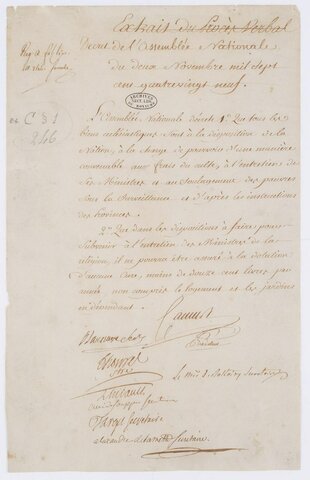 Extrait du Procès Verbal
Décret de l'assemblée Nationale
du deux Novembre mil sept
cent quatrevingt neuf.
ARCHIVES
C §I
246
L'assemblée Nationale décrète 1º Que tous les
biens ecclésiastiques sont à la disposition de la
Nation, à la charge de pourvoir d'une manière
convenable aux frais du culte, à l'entretien de
ses Ministres et au soulagement des pauvres
sous la surveillance et d'après les instructions
des provinces.
2º Que dans les dispositions à faire pour
subvenir à l'entretien des Ministres de la
religion, il ne pourra être assuré à la dotation
d'aucune Cure, moins de douze cent livres par
année non compris le logement et les jardins
en dépendant.
Camus
Président
Barnave
Thibault
Target Secrétaire
alexandre de Lameth Secrétaire